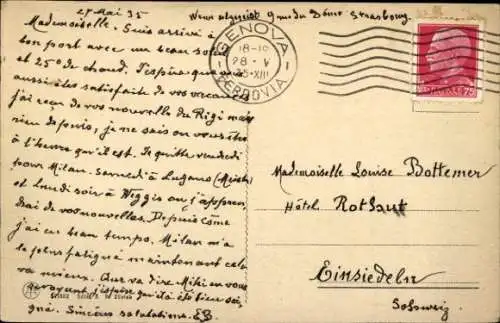 27 Mai 35
9 rue du Dôme Strasbourg
Mademoiselle. Suis arrivé à
bon port avec un beau soleil
et 25° de chaud. J'espère que
aussi êtes satisfaite de vos vacances
j'ai reçu de vos nouvelles du Rigi mais
rien depuis, je ne sais où vous êtes
à l'heure qu'il est. Je quitte vendredi
pour Milan. Samedi à Lugano
et Lundi soir à Weggis où j'appren
drai de vos nouvelles. Depuis Côme
j'ai eu beau temps. Milan m'a
le plus fatigué maintenant cela
va mieux. Que va dire Miki en vous
revoyant j'espère qu'il a été bien soi
gné. Sincères salutations. EB
GENOVA
18-19
28 · V
35-XIII
FERROVIA
75
Mademoiselle Louise Bottemer
Hôtel Rothut
Einsiedeln
Schweiz